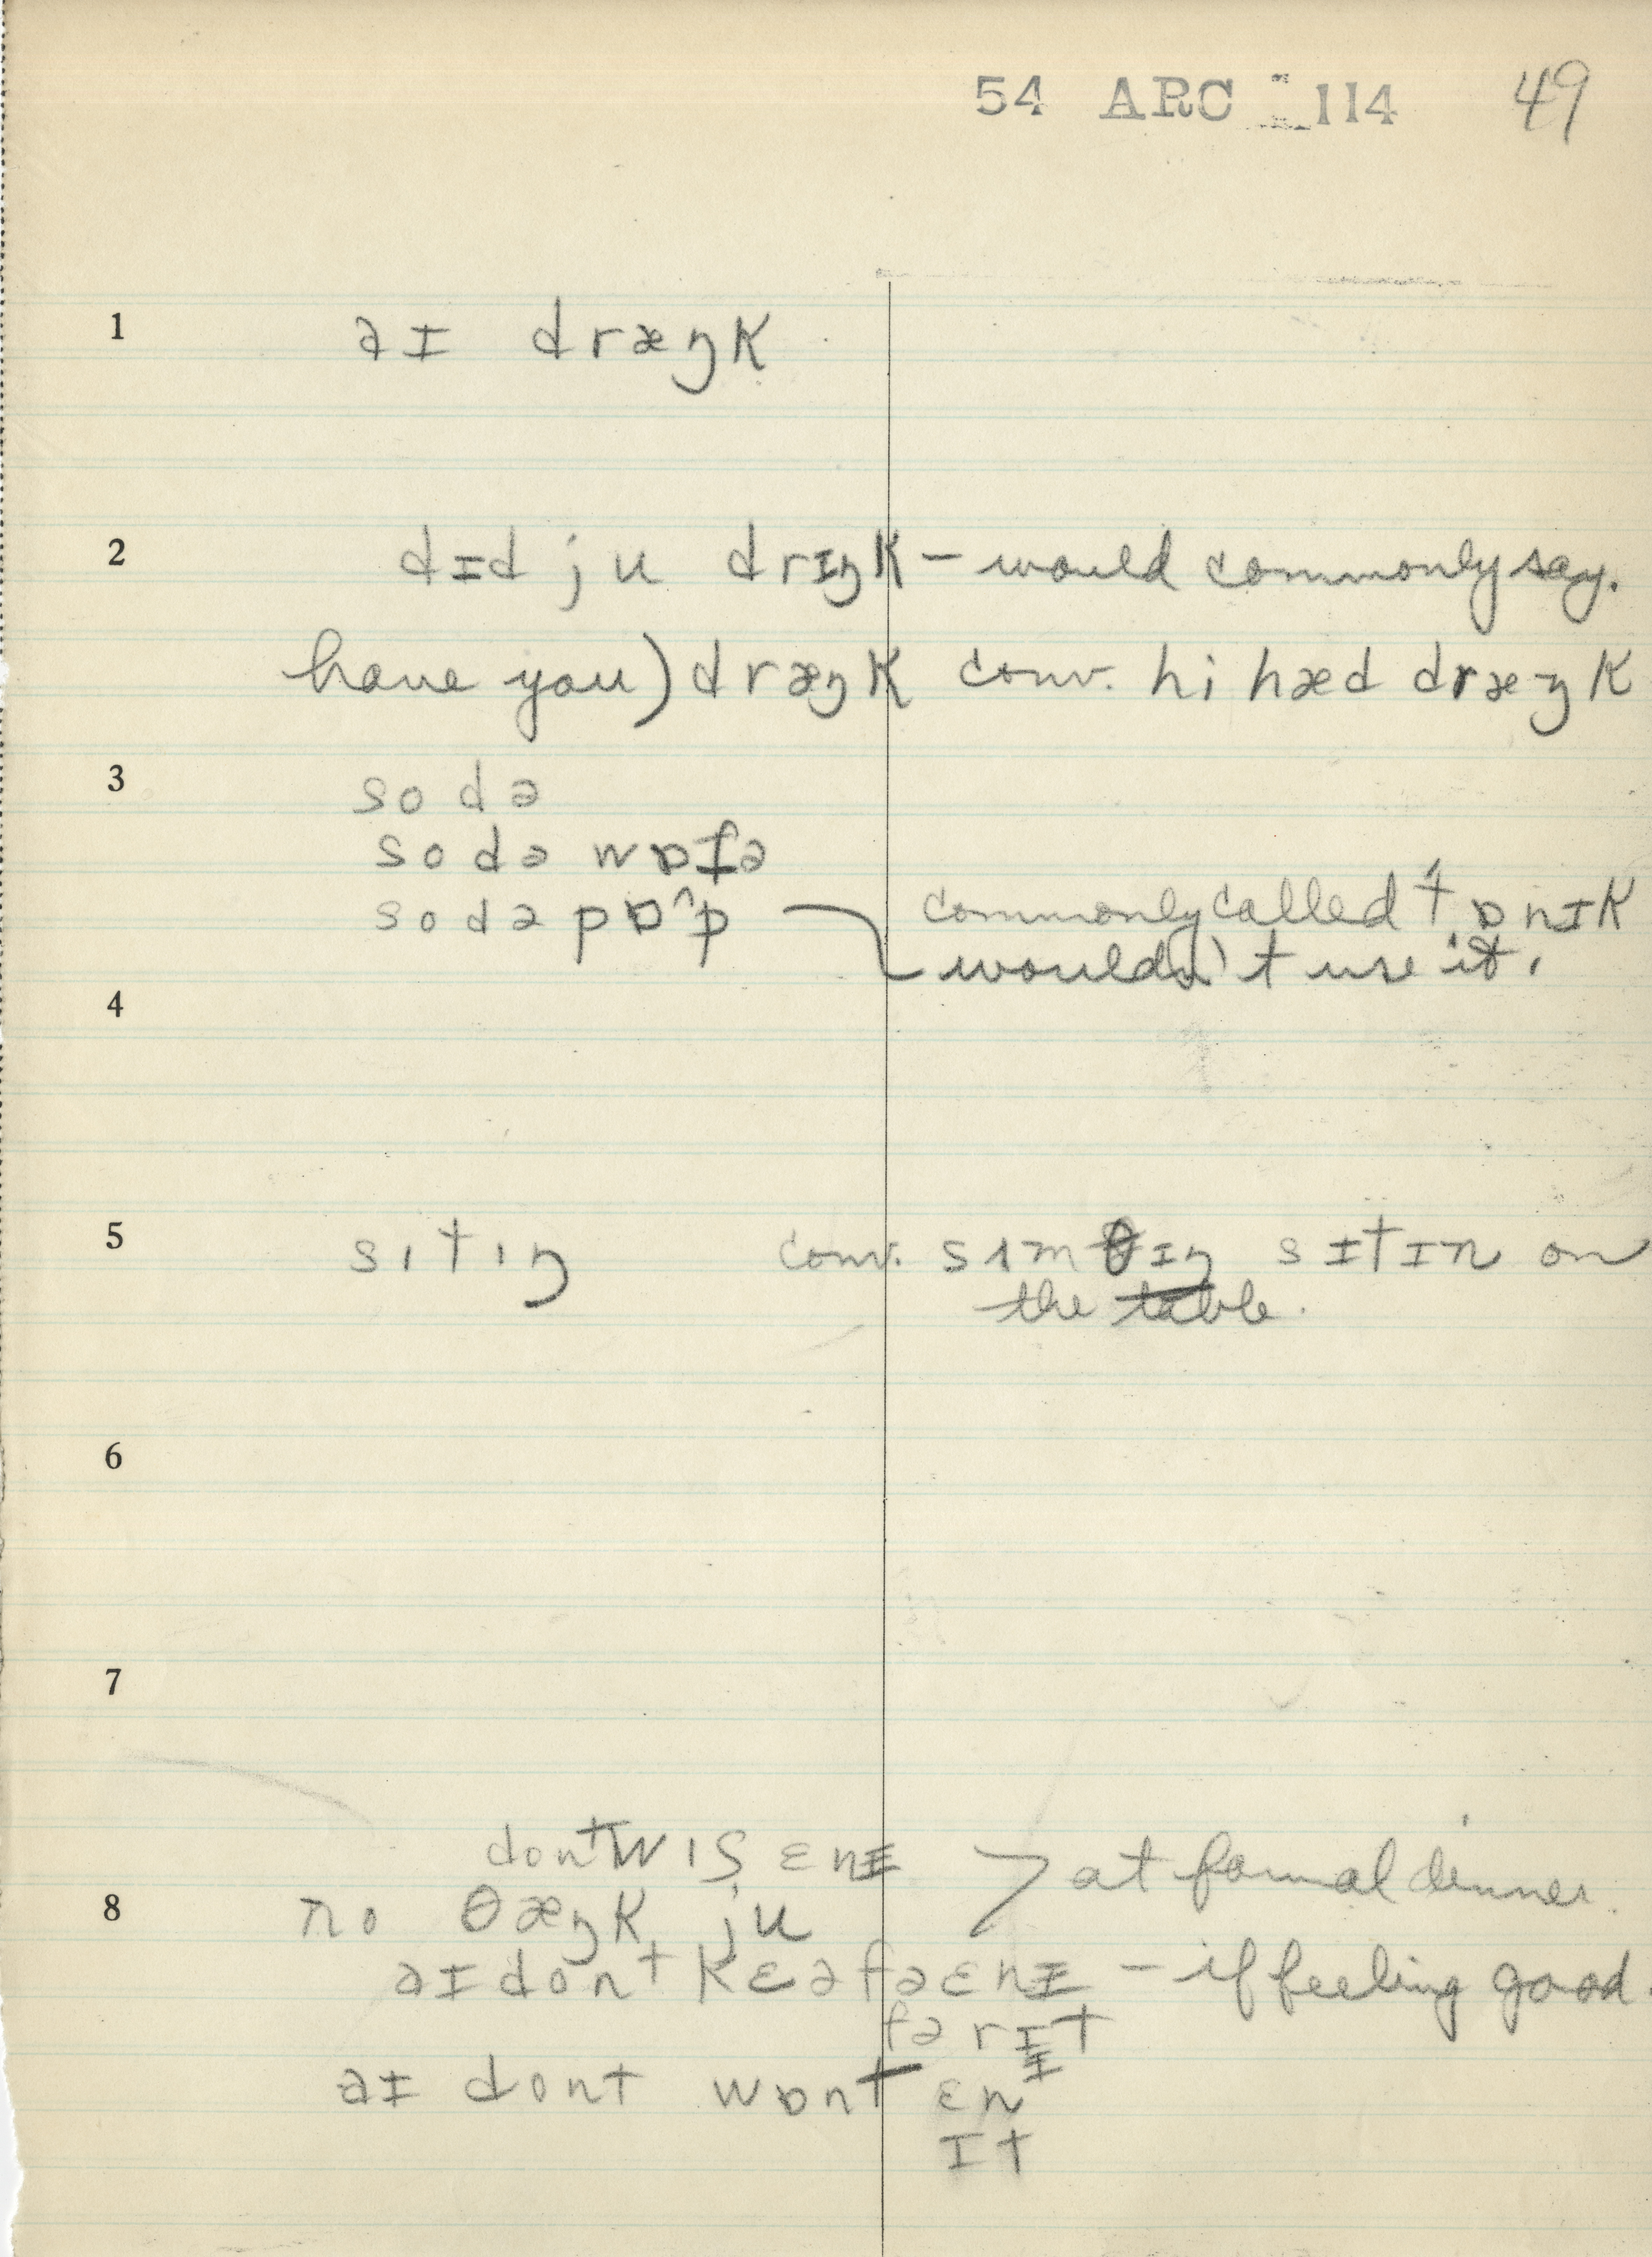 54 ARC 114 49
1 aɪ dræŋk
2 dɪd ju drɪŋk – would commonly say.
have you) dræŋk conv. hi hæd dræŋk
3 sodə
sodə wɒtə
sodə pɒ^p commonly called tɒnɪk
wouldn't use it.
4
5 sıtıŋ conv. sʌmθɪŋ sɪtɪn on
the table.
6
7
dont wıʃ ɛnɪ > at formal dinner.
8 no θæŋk ju
aɪ dont kɛəfə ɛnɪ – if feeling good.
fə rɪt
aɪ dont wɒnt ɛnɪ
ɪt